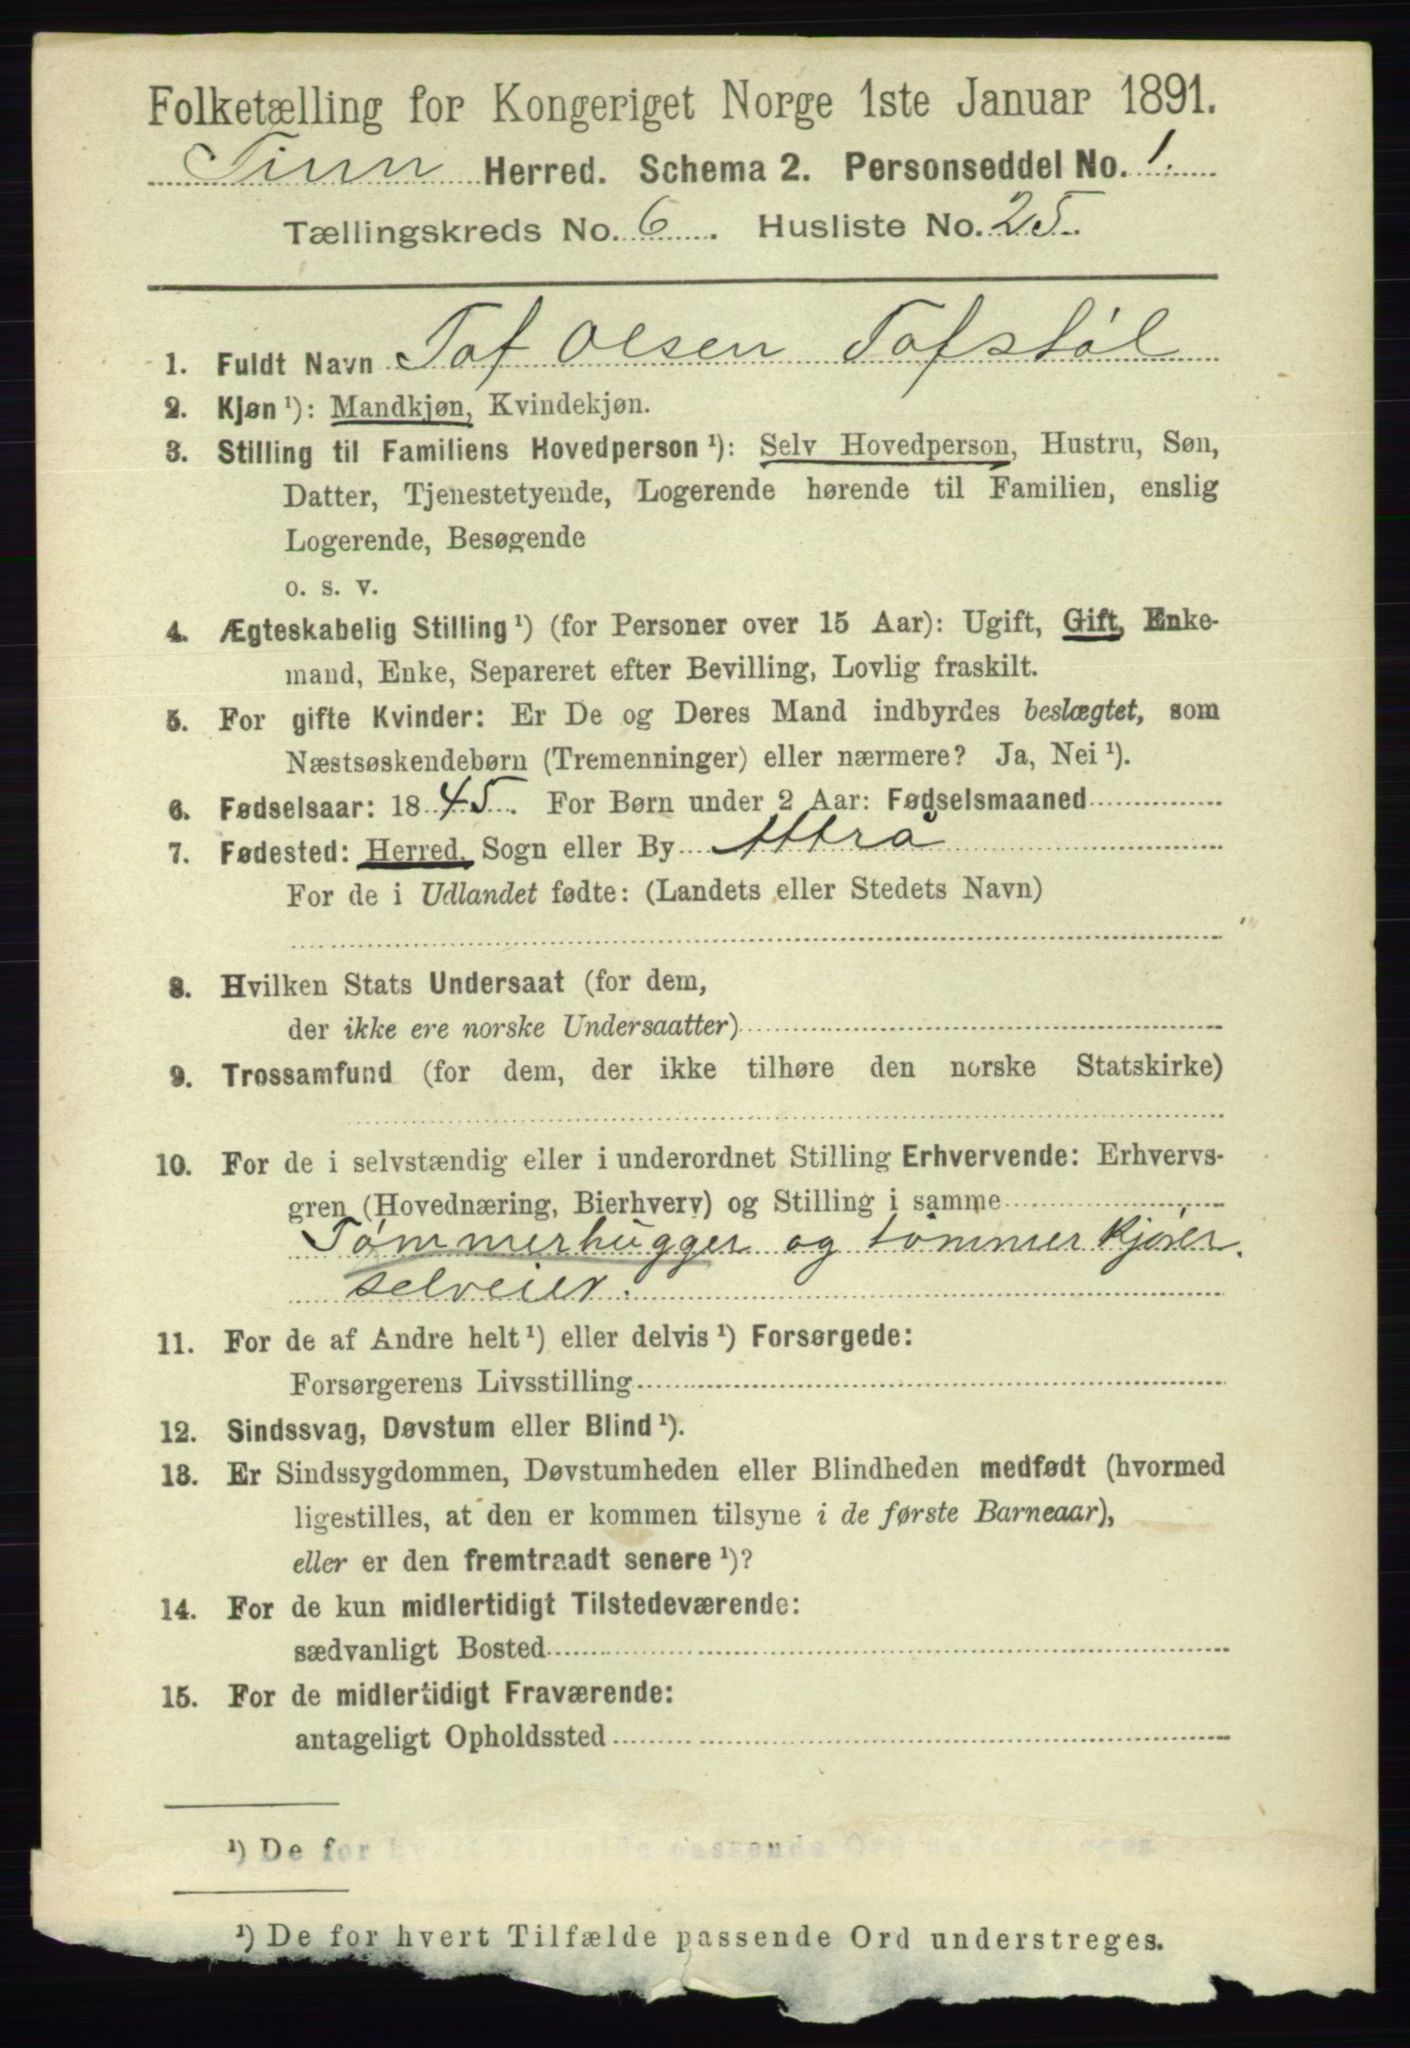 Folketælling for Kongeriget Norge 1ste Januar 1891.
Tinn Herred. Schema 2. Personseddel No. 1.
Tællingskreds No. 6. Husliste No. 25.
1. Fuldt Navn Tof Olsen Tofstøl
2. Kjøn ¹): Mandkjøn, Kvindekjøn.
3. Stilling til Familiens Hovedperson ¹): Selv Hovedperson, Hustru, Søn,
Datter, Tjenestetyende, Logerende hørende til Familien, enslig
Logerende, Besøgende
o. s. v.
4. Ægteskabelig Stilling ¹) (for Personer over 15 Aar): Ugift, Gift, Enke-
mand, Enke, Separeret efter Bevilling, Lovlig fraskilt.
5. For gifte Kvinder: Er De og Deres Mand indbyrdes beslægtet, som
Næstsøskendebørn (Tremenninger) eller nærmere? Ja, Nei ¹).
6. Fødselsaar: 1845. For Børn under 2 Aar: Fødselsmaaned
7. Fødested: Herred, Sogn eller By Attrå
For de i Udlandet fødte: (Landets eller Stedets Navn)
8. Hvilken Stats Undersaat (for dem,
der ikke ere norske Undersaatter)
9. Trossamfund (for dem, der ikke tilhøre den norske Statskirke)
10. For de i selvstændig eller i underordnet Stilling Erhvervende: Erhvervs-
gren (Hovednæring, Bierhverv) og Stilling i samme
Tømmerhugger og tømmerkjører.
selveier.
11. For de af Andre helt ¹) eller delvis ¹) Forsørgede:
Forsørgerens Livsstilling
12. Sindssvag, Døvstum eller Blind ¹).
13. Er Sindssygdommen, Døvstumheden eller Blindheden medfødt (hvormed
ligestilles, at den er kommen tilsyne i de første Barneaar),
eller er den fremtraadt senere ¹)?
14. For de kun midlertidigt Tilstedeværende:
sædvanligt Bosted
15. For de midlertidigt Fraværende:
antageligt Opholdssted
¹) De for hvert Tilfælde passende Ord understreges
¹) De for hvert Tilfælde passende Ord understreges.